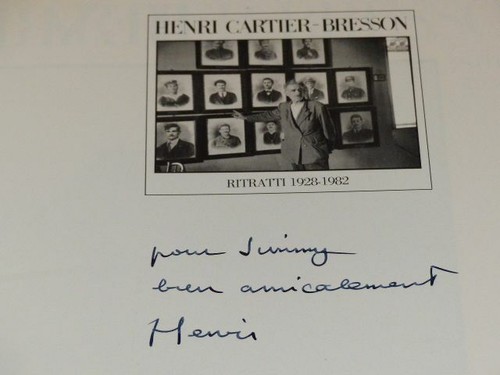 HENRI CARTIER-BRESSON
RITRATTI 1928-1982
pour Jimmy
bien amicalement
Henri